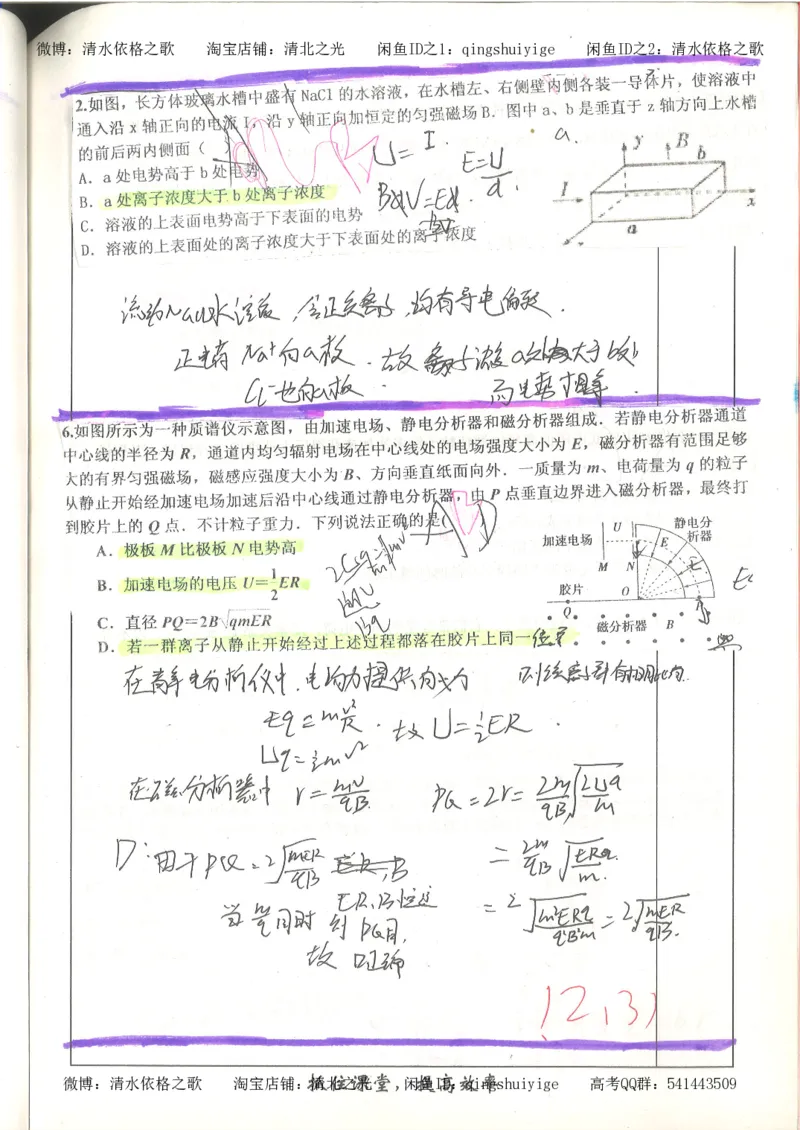 微博：清水依格之歌 淘宝店铺：清北之光 闲鱼ID之1：qingshuiyige 闲鱼ID之2：清水依格之歌
2.如图，长方体玻璃水槽中盛有 NaCl 的水溶液，在水槽左、右侧壁内侧各装一导体片，使溶液中
通入沿 x 轴正向的电流 I，沿 y 轴正向加恒定的匀强磁场 B．图中 a、b 是垂直于 z 轴方向上水槽
的前后两内侧面（ ）
A．a 处电势高于 b 处电势
B．a 处离子浓度大于 b 处离子浓度
C．溶液的上表面电势高于下表面的电势
D．溶液的上表面处的离子浓度大于下表面处的离子浓度
U= I
E=U/d.
BqV=Eq.
a.
y B b I x a z
流动NaCl水溶液，含正负离子，均有导电能力．
正电荷 Na⁺向a板．故离子浓度a处大于b处
Cl⁻也向a板． 而电势相等．
6.如图所示为一种质谱仪示意图，由加速电场、静电分析器和磁分析器组成．若静电分析器通道
中心线的半径为 R，通道内均匀辐射电场在中心线处的电场强度大小为 E，磁分析器有范围足够
大的有界匀强磁场，磁感应强度大小为 B、方向垂直纸面向外．一质量为 m、电荷量为 q 的粒子
从静止开始经加速电场加速后沿中心线通过静电分析器，由 P 点垂直边界进入磁分析器，最终打
到胶片上的 Q 点．不计粒子重力．下列说法正确的是( )
AD
A．极板 M 比极板 N 电势高
B．加速电场的电压 U=1/2 ER
C．直径 PQ=2B√qmER
D．若一群离子从静止开始经过上述过程都落在胶片上同一位置
U 静电分析器
加速电场 E
M N
胶片 O
Q 磁分析器 B
在静电分析仪中，电场力提供向心力
Eq=mv²/R．故 U=1/2 ER．
Uq=1/2 mv²
在磁分析器中 r=mv/qB PQ=2r=2m/qB √2Uq/m
D：由于PQ=2√mER/qB =2m/qB √ERq/m.
ER、B恒定 =2√m²ERq/q²B²m=2√mER/qB².
当m/q同时 则PQ同，
故D正确
12,31
微博：清水依格之歌 淘宝店铺：清北之光 闲鱼ID之1：qingshuiyige 高考QQ群：541443509
抓住课堂，提高效率